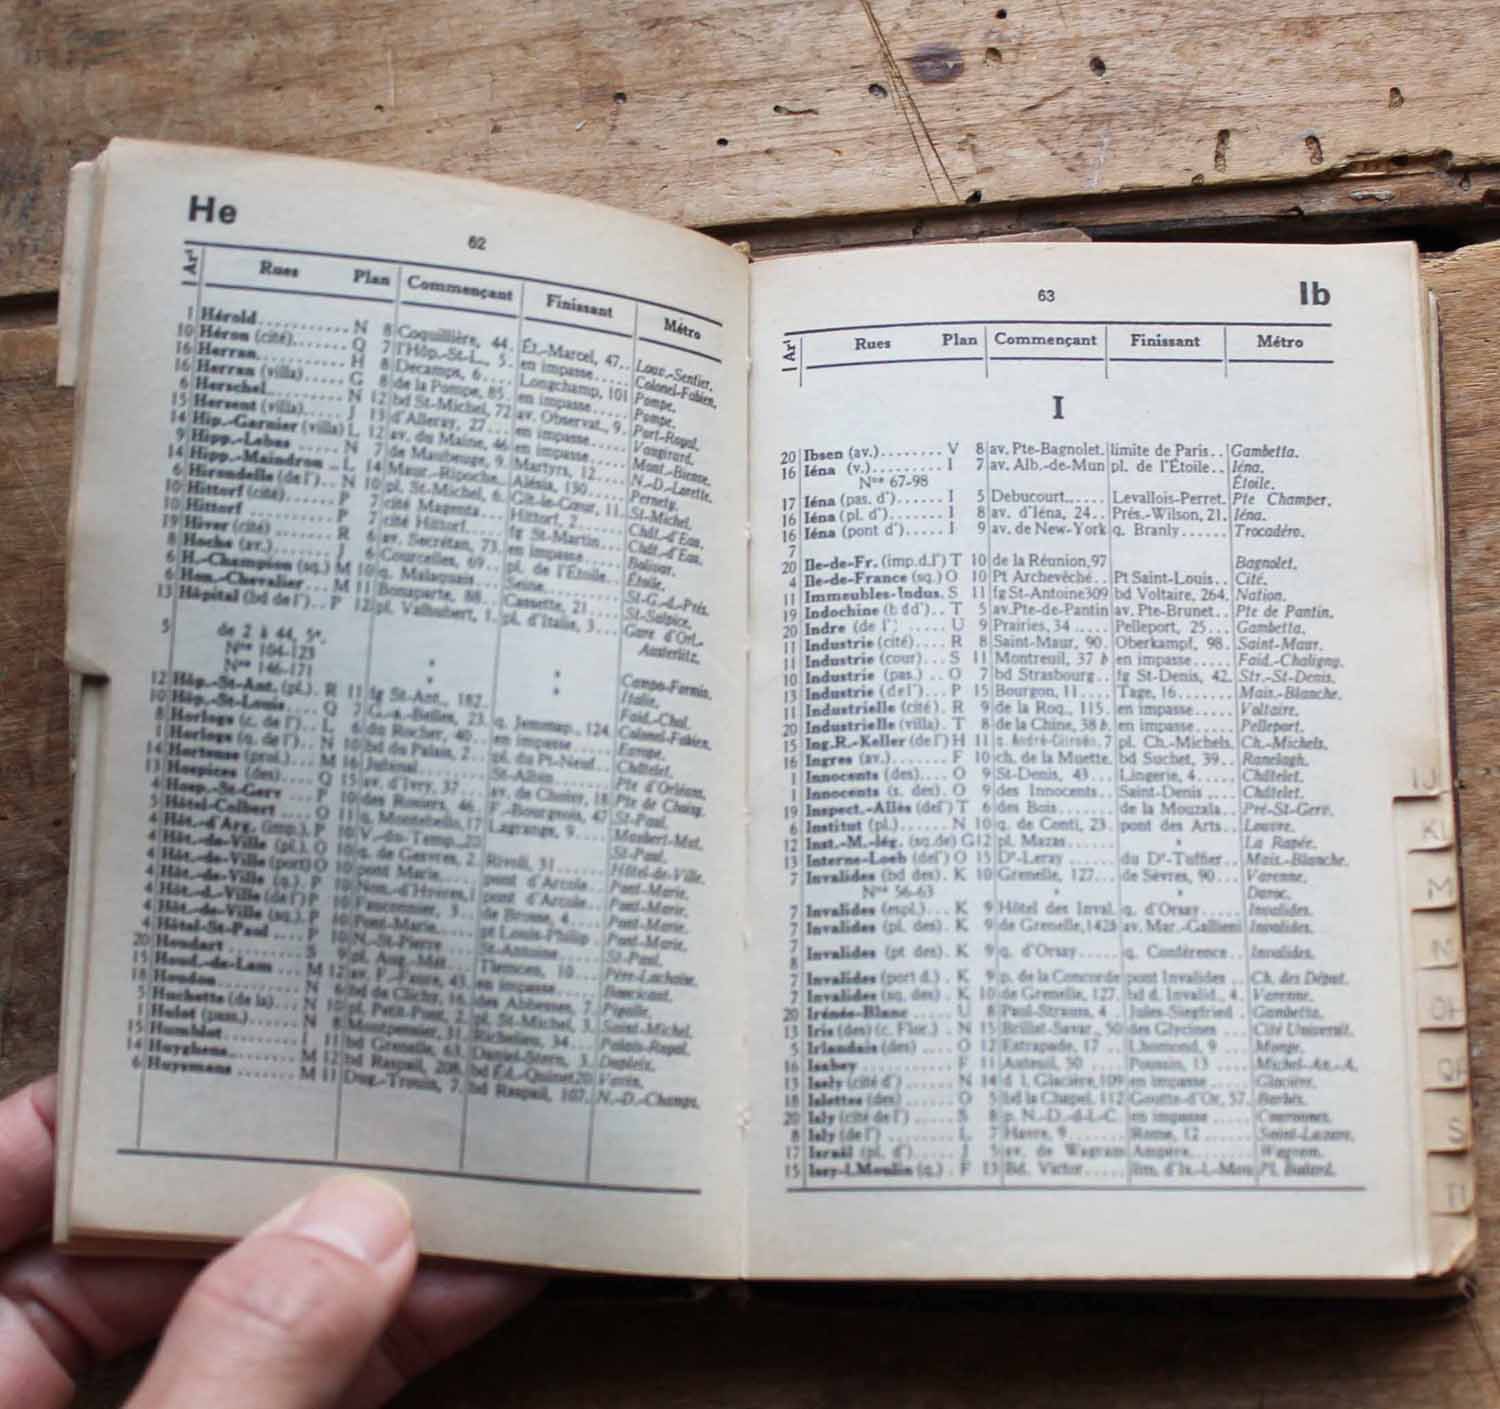 He
62
Arᵗ Rues Plan Commençant Finissant Métro
1 Hérold........... N 8 Coquillière, 44. Ét.-Marcel, 47.. Louv.-Sentier.
10 Héron (cité)....... Q 7 l'Hôp.-St-L., 5. en impasse..... Colonel-Fabien.
16 Herran........... H 8 Decamps, 6.... Longchamp, 101 Pompe.
16 Herran (villa).... G 8 de la Pompe, 85. en impasse..... Pompe.
6 Herschel.......... N 12 bd St-Michel, 72 av. Observat., 9. Port-Royal.
15 Hersent (villa).... J 13 d'Alleray, 27... en impasse..... Vaugirard.
14 Hip.-Garnier (villa) L 12 av. du Maine, 46 en impasse..... Mont.-Bienne.
9 Hipp.-Lebas ..... N 7 de Maubeuge, 9. Martyrs, 12.... N.-D.-Lorette.
14 Hipp.-Maindron .. L 14 Maur.-Ripoche. Alésia, 130.... Pernety.
6 Hirondelle (de l').. N 10 pl. St-Michel, 6. Gît-le-Cœur, 11. St-Michel.
10 Hittorf (cité)...... P 7 cité Magenta Hittorf, 2...... Chât.-d'Eau.
10 Hittorf .......... P 7 cité Hittorf. fg St-Martin... Chât.-d'Eau.
19 Hiver (cité) ...... R 6 av. Secrétan, 73. en impasse.... Bolivar.
8 Hoche (av.)....... J 6 Courcelles, 69.. pl. de l'Étoile.. Étoile.
6 H.-Champion (sq.) M 10 q. Malaquais... Seine......... St-G.-d.-Prés.
6 Hon.-Chevalier... M 11 Bonaparte, 88.. Cassette, 21.... St-Sulpice.
13 Hôpital (bd de l').. P 12 pl. Valhubert, 1. pl. d'Italie, 3... Gare d'Orl.-
5 de 2 à 44, 5ᵉ. Austerlitz.
Nᵒˢ 104-123 » » Campo-Formio.
Nᵒˢ 146-171 » » Italie.
12 Hôp.-St-Ant. (pl.). R 11 fg St-Ant., 182. Faid.-Chal.
10 Hôp.-St-Louis.... Q 7 G.-a.-Belles, 23. q. Jemmap., 124. Colonel-Fabien.
8 Horloge (c. de l').. L 6 du Rocher, 40.. en impasse..... Europe.
1 Horloge (q. de l').. N 10 bd du Palais, 2.. pl. du Pt-Neuf.. Châtelet.
14 Hortense (prol.)... M 16 Jubinal........ St-Alban...... Pte d'Orléans.
13 Hospices (des).... Q 15 av. d'Ivry, 37... av. de Choisy, 18 Pte de Choisy.
4 Hosp.-St-Gerv ... P 10 des Rosiers, 46. F.-Bourgeois, 47 St-Paul.
5 Hôtel-Colbert .... O 11 q. Montebello, 17 Lagrange, 9.... Maubert-Mut.
4 Hôt.-d'Arg. (imp.). P 10 V.-du-Temp., 20 St-Paul.
4 Hôt.-de-Ville (pl.). O 10 q. de Gesvres, 2. Rivoli, 31...... Hôtel-de-Ville.
4 Hôt.-de-Ville (port) O 10 pont Marie.... pont d'Arcole.. Pont-Marie.
4 Hôt.-de-Ville (q.). P 10 Non.-d'Hyères, 1 pont d'Arcole.. Pont-Marie.
4 Hôt.-d.-Ville (de l') P 10 Fauconnier, 3.. de Brosse, 4.... Pont-Marie.
4 Hôt.-de-Ville (sq.). P 10 Pont-Marie.... pt Louis-Philip . Pont-Marie.
4 Hôtel-St-Paul .... P 10 N.-St-Pierre St-Antoine..... St-Paul.
20 Houdart ......... S 9 pl. Aug.-Mét. Tlemcen, 10... Père-Lachaise.
15 Houd.-de-Lam ... M 12 av. F.-Faure, 43. en impasse..... Boucicaut.
18 Houdon .......... N 6 bd de Clichy, 16. des Abbesses, 7. Pigalle.
5 Huchette (de la)... N 10 pl. Petit-Pont, 2. pl. St-Michel, 3. Saint-Michel.
1 Hulot (pass.)...... N 8 Montpensier, 31. Richelieu, 34... Palais-Royal.
15 Humblot ......... I 11 bd Grenelle, 63. Daniel-Stern, 3. Dupleix.
14 Huyghens........ M 12 bd Raspail, 208. bd Éd.-Quinet, 20 Vavin.
6 Huysmans ....... M 11 Dug.-Trouin, 7. bd Raspail, 107. N.-D.-Champs.
63
Ib
Arᵗ Rues Plan Commençant Finissant Métro
I
20 Ibsen (av.)........ V 8 av. Pte-Bagnolet. limite de Paris.. Gambetta.
16 Iéna (v.)......... I 7 av. Alb.-de-Mun pl. de l'Étoile.. Iéna.
Nᵒˢ 67-98 Étoile.
17 Iéna (pas. d')...... I 5 Debucourt..... Levallois-Perret. Pte Champer.
16 Iéna (pl. d')....... I 8 av. d'Iéna, 24.. Prés.-Wilson, 21. Iéna.
16 Iéna (pont d')..... I 9 av. de New-York q. Branly...... Trocadéro.
7
20 Ile-de-Fr. (imp.d.l') T 10 de la Réunion,97 Bagnolet.
4 Ile-de-France (sq.) O 10 Pt Archevêché.. Pt Saint-Louis.. Cité.
11 Immeubles-Indus. S 11 fg St-Antoine309 bd Voltaire, 264. Nation.
19 Indochine (b dd').. T 5 av.Pte-de-Pantin av. Pte-Brunet.. Pte de Pantin.
20 Indre (de l') ...... U 9 Prairies, 34 .... Pelleport, 25... Gambetta.
11 Industrie (cité).... R 8 Saint-Maur, 90. Oberkampf, 98. Saint-Maur.
11 Industrie (cour)... S 11 Montreuil, 37 b en impasse..... Faid.-Chaligny.
10 Industrie (pas.) ... O 7 bd Strasbourg.. fg St-Denis, 42. Str.-St-Denis.
13 Industrie (de l').... P 15 Bourgon, 11.... Tage, 16....... Mais.-Blanche.
11 Industrielle (cité). R 9 de la Roq., 115. en impasse..... Voltaire.
20 Industrielle (villa). T 8 de la Chine, 38 b. en impasse..... Pelleport.
15 Ing.R.-Keller (de l') H 11 q. André-Citroën, 7 pl. Ch.-Michels. Ch.-Michels.
16 Ingres (av.)....... F 10 ch. de la Muette. bd Suchet, 39.. Ranelagh.
1 Innocents (des).... O 9 St-Denis, 43... Lingerie, 4..... Châtelet.
1 Innocents (s. des). O 9 des Innocents.. Saint-Denis ... Châtelet.
19 Inspect.-Allès (del') T 6 des Bois....... de la Mouzaïa.. Pré-St-Gerv.
6 Institut (pl.)....... N 10 q. de Conti, 23. pont des Arts.. Louvre.
12 Inst.-M.-lég. (sq.de) G12 pl. Mazas...... » La Rapée.
13 Interne-Loeb (del') O 15 Dʳ-Leray ...... du Dʳ-Tuffier.. Mais.-Blanche.
7 Invalides (bd des). K 10 Grenelle, 127... de Sèvres, 90... Varenne.
Nᵒˢ 56-63 » » Duroc.
7 Invalides (espl.)... K 9 Hôtel des Inval. q. d'Orsay..... Invalides.
7 Invalides (pl. des). K 9 de Grenelle,142b av. Mar.-Gallieni Invalides.
7
8 Invalides (pt des). K 9 q. d'Orsay..... q. Conférence.. Invalides.
7 Invalides (port d.). K 9 p. de la Concorde pont Invalides .. Ch. des Déput.
7 Invalides (sq. des). K 10 de Grenelle, 127. bd d. Invalid., 4. Varenne.
20 Irénée-Blanc ..... U 8 Paul-Strauss, 4. Jules-Siegfried . Gambetta.
13 Iris (des) (c. Flor.) . N 15 Brillat-Savar., 50 des Glycines ... Cité Universit.
5 Irlandais (des) .... O 12 Estrapade, 17 .. Lhomond, 9 ... Monge.
16 Isabey .......... F 11 Auteuil, 50 .... Poussin, 13 .... Michel-An.-A.
13 Issly (cité d')...... N 14 d l. Glacière,109 en impasse .... Glacière.
18 Islettes (des) ..... O 5 bd la Chapel, 112 Goutte-d'Or, 57. Barbès.
20 Isly (cité de l')..... S 8 p. N.-D.-d-L-C. en impasse .... Couronnes.
8 Isly (de l') ........ L 7 Havre, 9....... Rome, 12 ..... Saint-Lazare.
17 Israël (pl. d')...... J 5 av. de Wagram Ampère....... Wagram.
15 Issy-l.Moulin (q.) . F 13 Bd. Victor..... lim. d'Is.-l.-Mou Pl. Balard.
IJ
KL
M
N
OH
QR
S